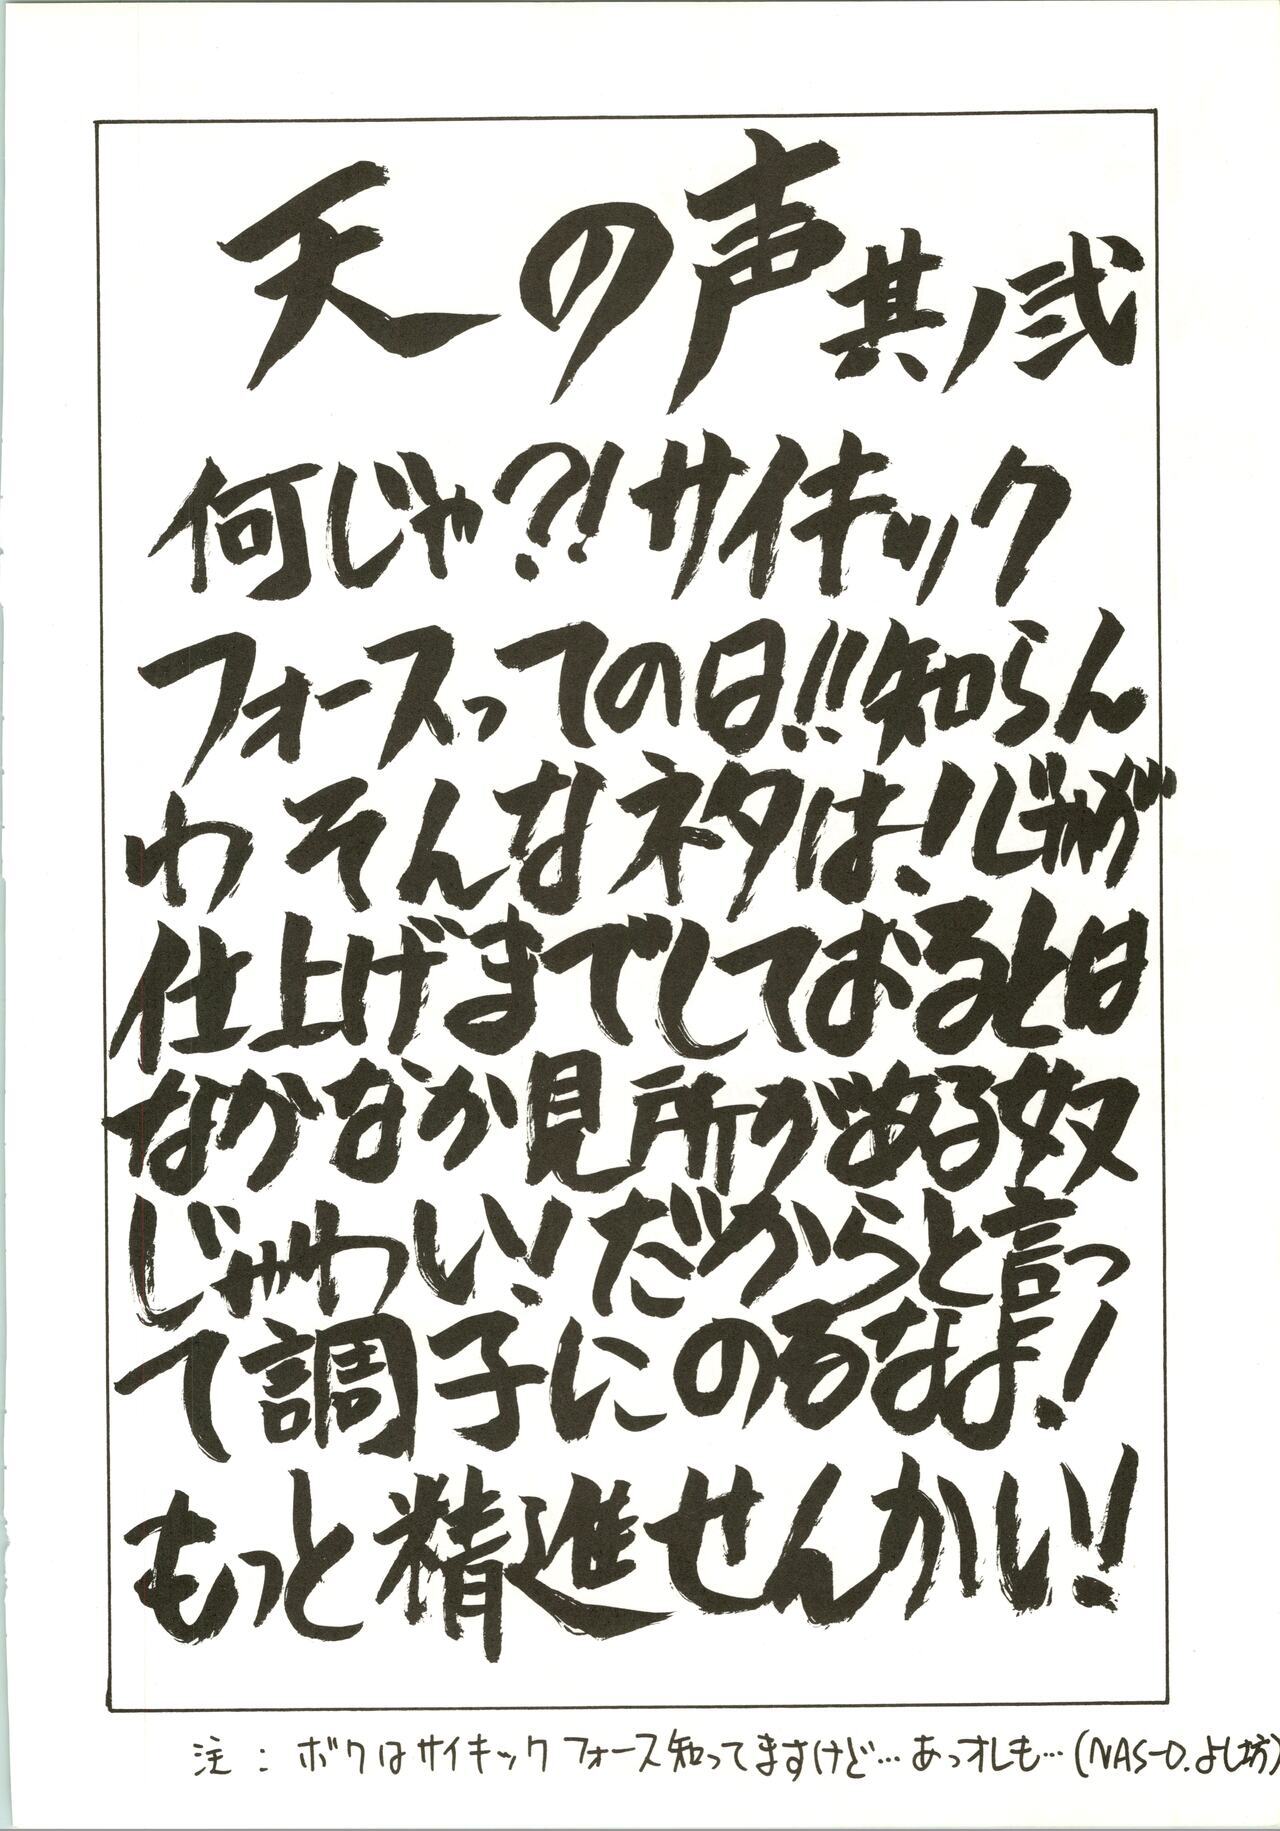 天の声其ノ弐
何じゃ?!サイキック
フォースっての日!!知らん
わそんなネタは!じゃが
仕上げまでしておるとは
なかなか見所がある奴
じゃわい!だからと言っ
て調子にのるなよ!
もっと精進せんかい!
注:ボクはサイキックフォース知ってますけど…あっオレも…(NAS-O.よし坊)